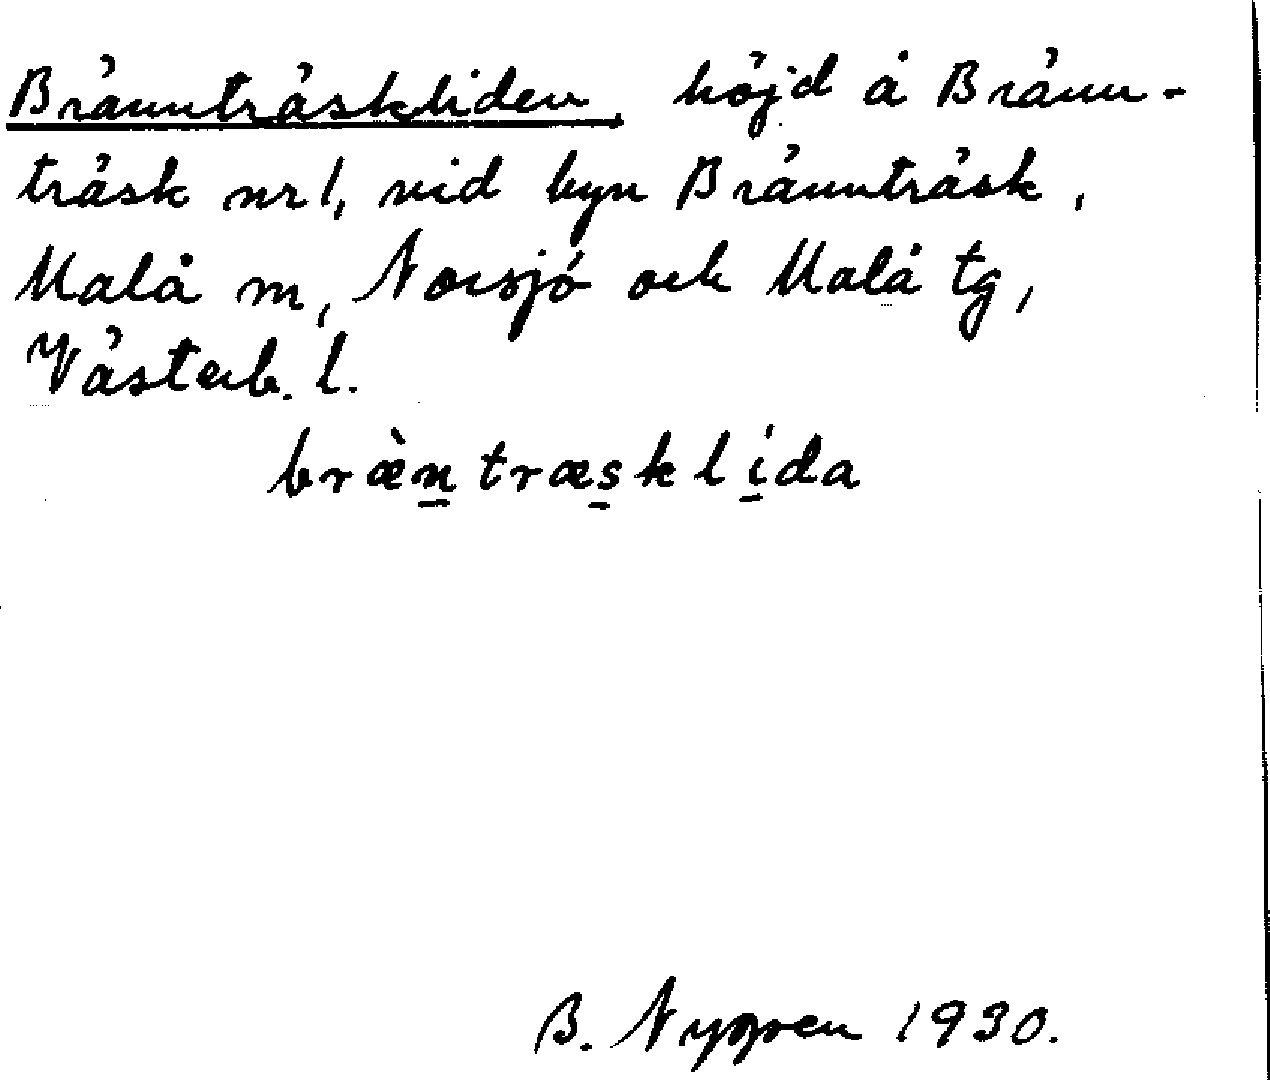 Brännträskliden, höjd å Bränn-
träsk nr 1, vid byn Brännträsk,
Malå m, Norsjö och Malå tg,
Västerb. l.
bræ̀n̲træs̲klí̲da
B. Nygren 1930.